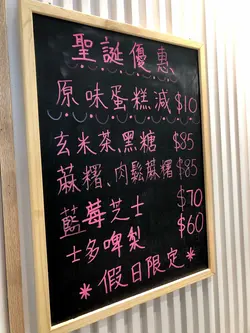 聖誕優惠
原味蛋糕減 $10
玄米茶、黑糖 $85
蔴糬、肉鬆蔴糬 $85
藍莓芝士 $70
士多啤梨 $60
*假日限定*